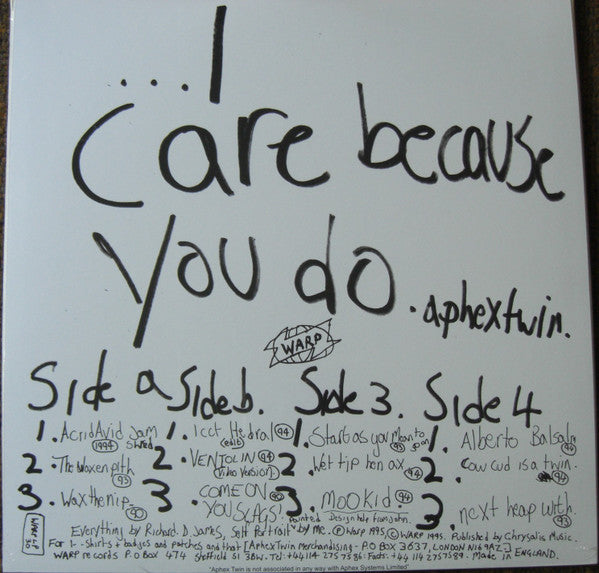 ...I
Care because
you do.
.aphextwin.
WARP
Side a
1. AcridAvid Jam Shred 1994
2. The Waxen pith 93
3. Wax the nip 90
Side b.
1. Icct Hedral 94 (edit)
2. VENTOLIN 94 (Video Version)
3. COME ON YOU SLAGS! 90
Side 3.
1. Start as you Mean to go on 93
2. Wet tip hen ax 94
3. MOOKid. 94
Side 4
1. Alberto Balsalm 94
2. Cow cud is a twin. 94
3. next heap with. 93
Everything by Richard. D. James, Self Portrait painted by Me. Design help from John. Ⓟ Warp 1995, © WARP 1995. Published by Chrysalis Music.
WARP LP 30
For t-shirts + badges and patches and that [AphexTwin Merchandising - P.O BOX 3637, LONDON N16 9AZ]
WARP records P O Box 474 Sheffield S1 3BW. Tel: +44 114 275 7586. Facts: +44 114 2757589. Made in ENGLAND.
"Aphex Twin is not associated in any way with Aphex Systems Limited"